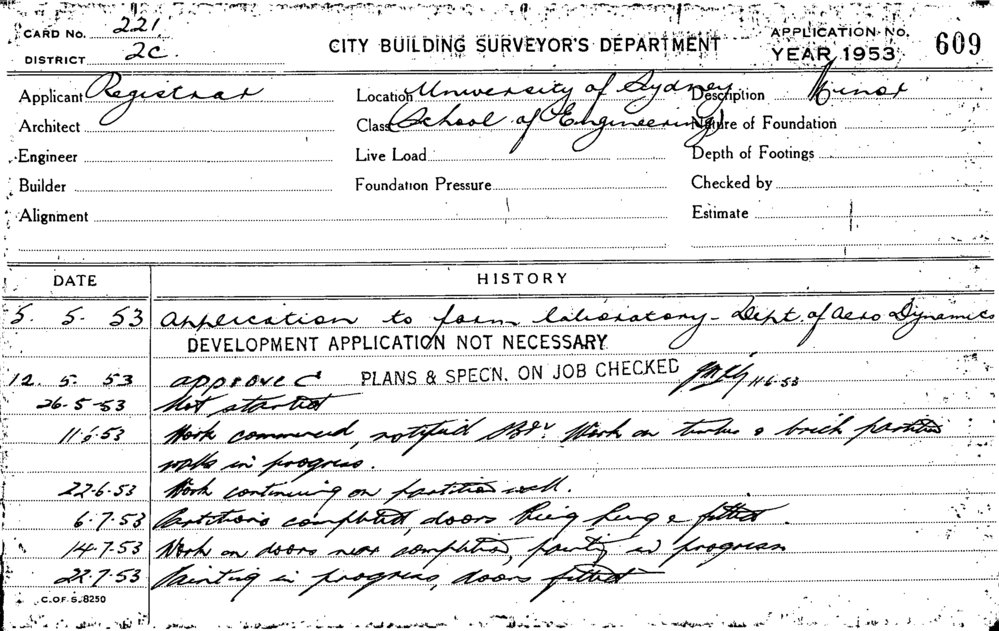 CARD No. 221
DISTRICT 2C
CITY BUILDING SURVEYOR'S DEPARTMENT
APPLICATION No. 609
YEAR 1953
Applicant Registrar
Location University of Sydney
Description Minor
Architect
Class School of Engineering
Nature of Foundation
Engineer
Live Load
Depth of Footings
Builder
Foundation Pressure
Checked by
Alignment
Estimate
DATE HISTORY
5. 5. 53 Application to form laboratory - Dept. of Aero Dynamics
DEVELOPMENT APPLICATION NOT NECESSARY
12. 5. 53 approved PLANS & SPECN. ON JOB CHECKED 11·6·53
26·5·53 Not started
11·6·53 Work commenced, notified Work on timber & brick partition
walls in progress.
22·6·53 Work continuing on partition wall.
6·7·53 Partitions completed, doors being hung & fitted.
14·7·53 Work on doors near completion, painting in progress
22·7·53 Painting in progress, doors fitted
C.OF S. 8250